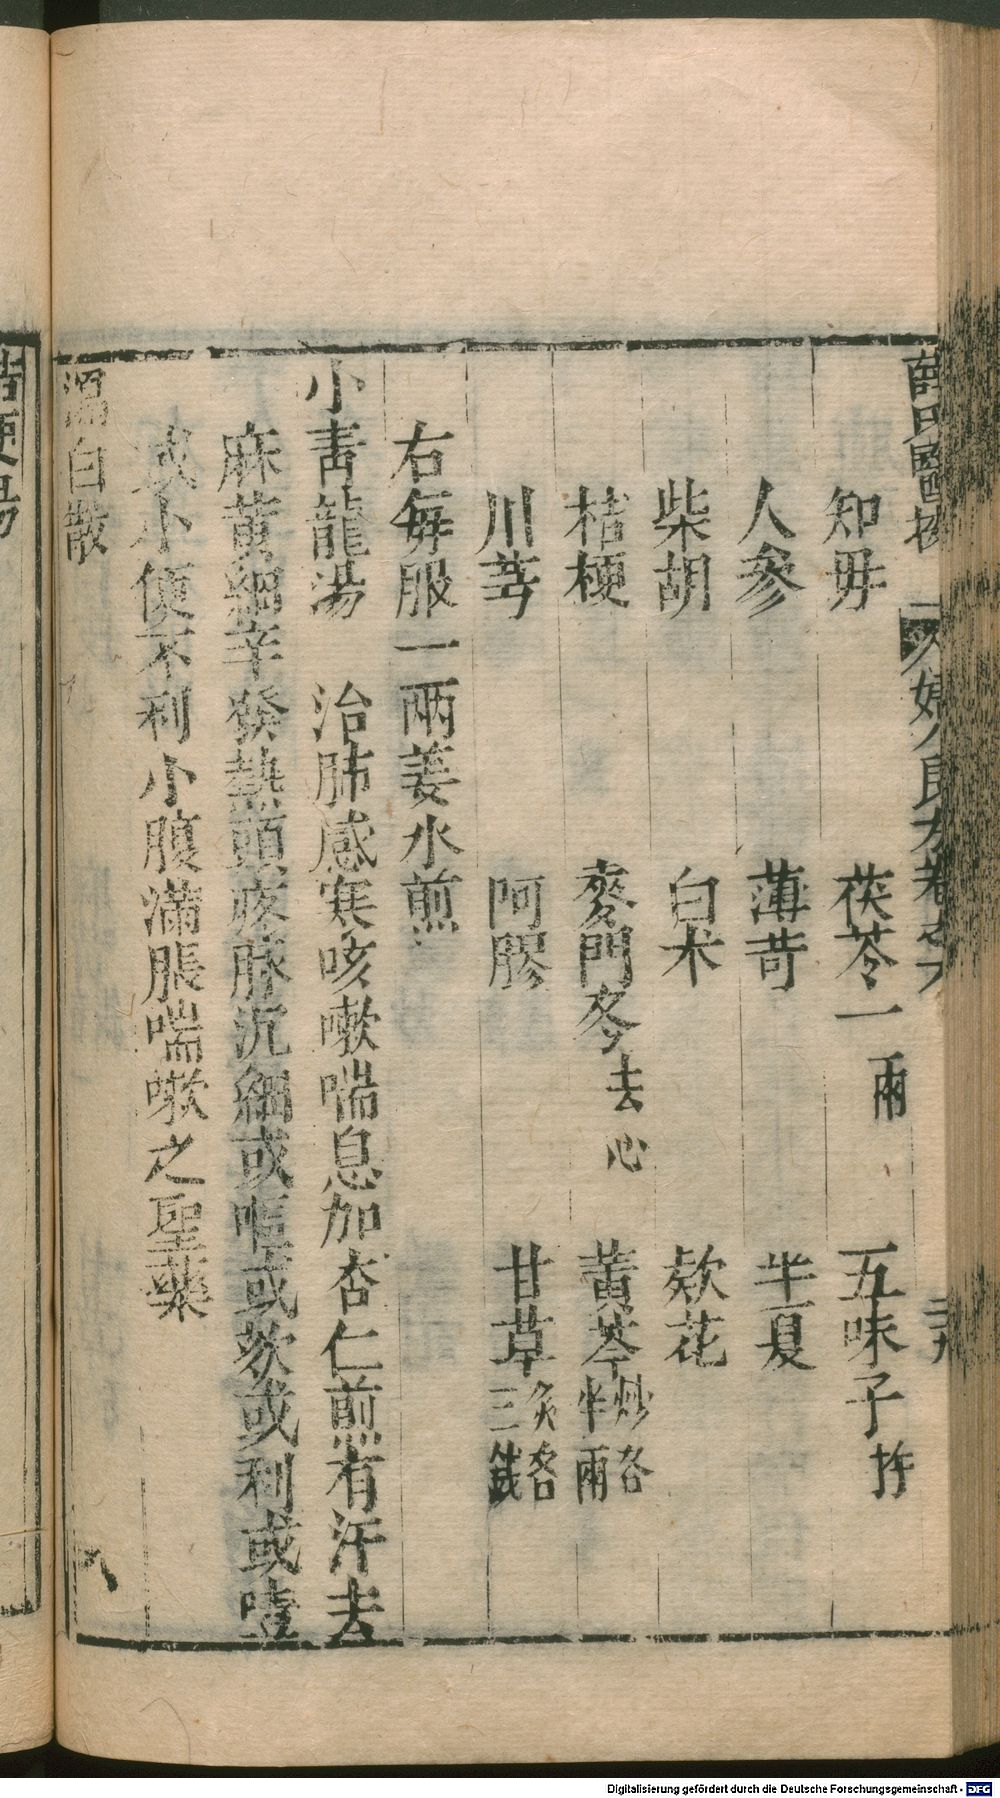 薛氏醫按 婦人良方卷之六 二十九
知母 茯苓一兩 五味子杵
人參 薄苛 半夏
柴胡 白术 欵花
桔梗 麥門冬去心 黃芩炒各半兩
川芎 阿膠 甘草炙各三錢
右每服一兩姜水煎
小青龍湯 治肺感寒咳嗽喘息加杏仁煎有汗去
麻黃細辛發熱頭疼脉沉細或嘔或欬或利或噎
或小便不利小腹滿脹喘嗽之聖藥
溫白散
桔梗湯
Digitalisierung gefördert durch die Deutsche Forschungsgemeinschaft - DFG